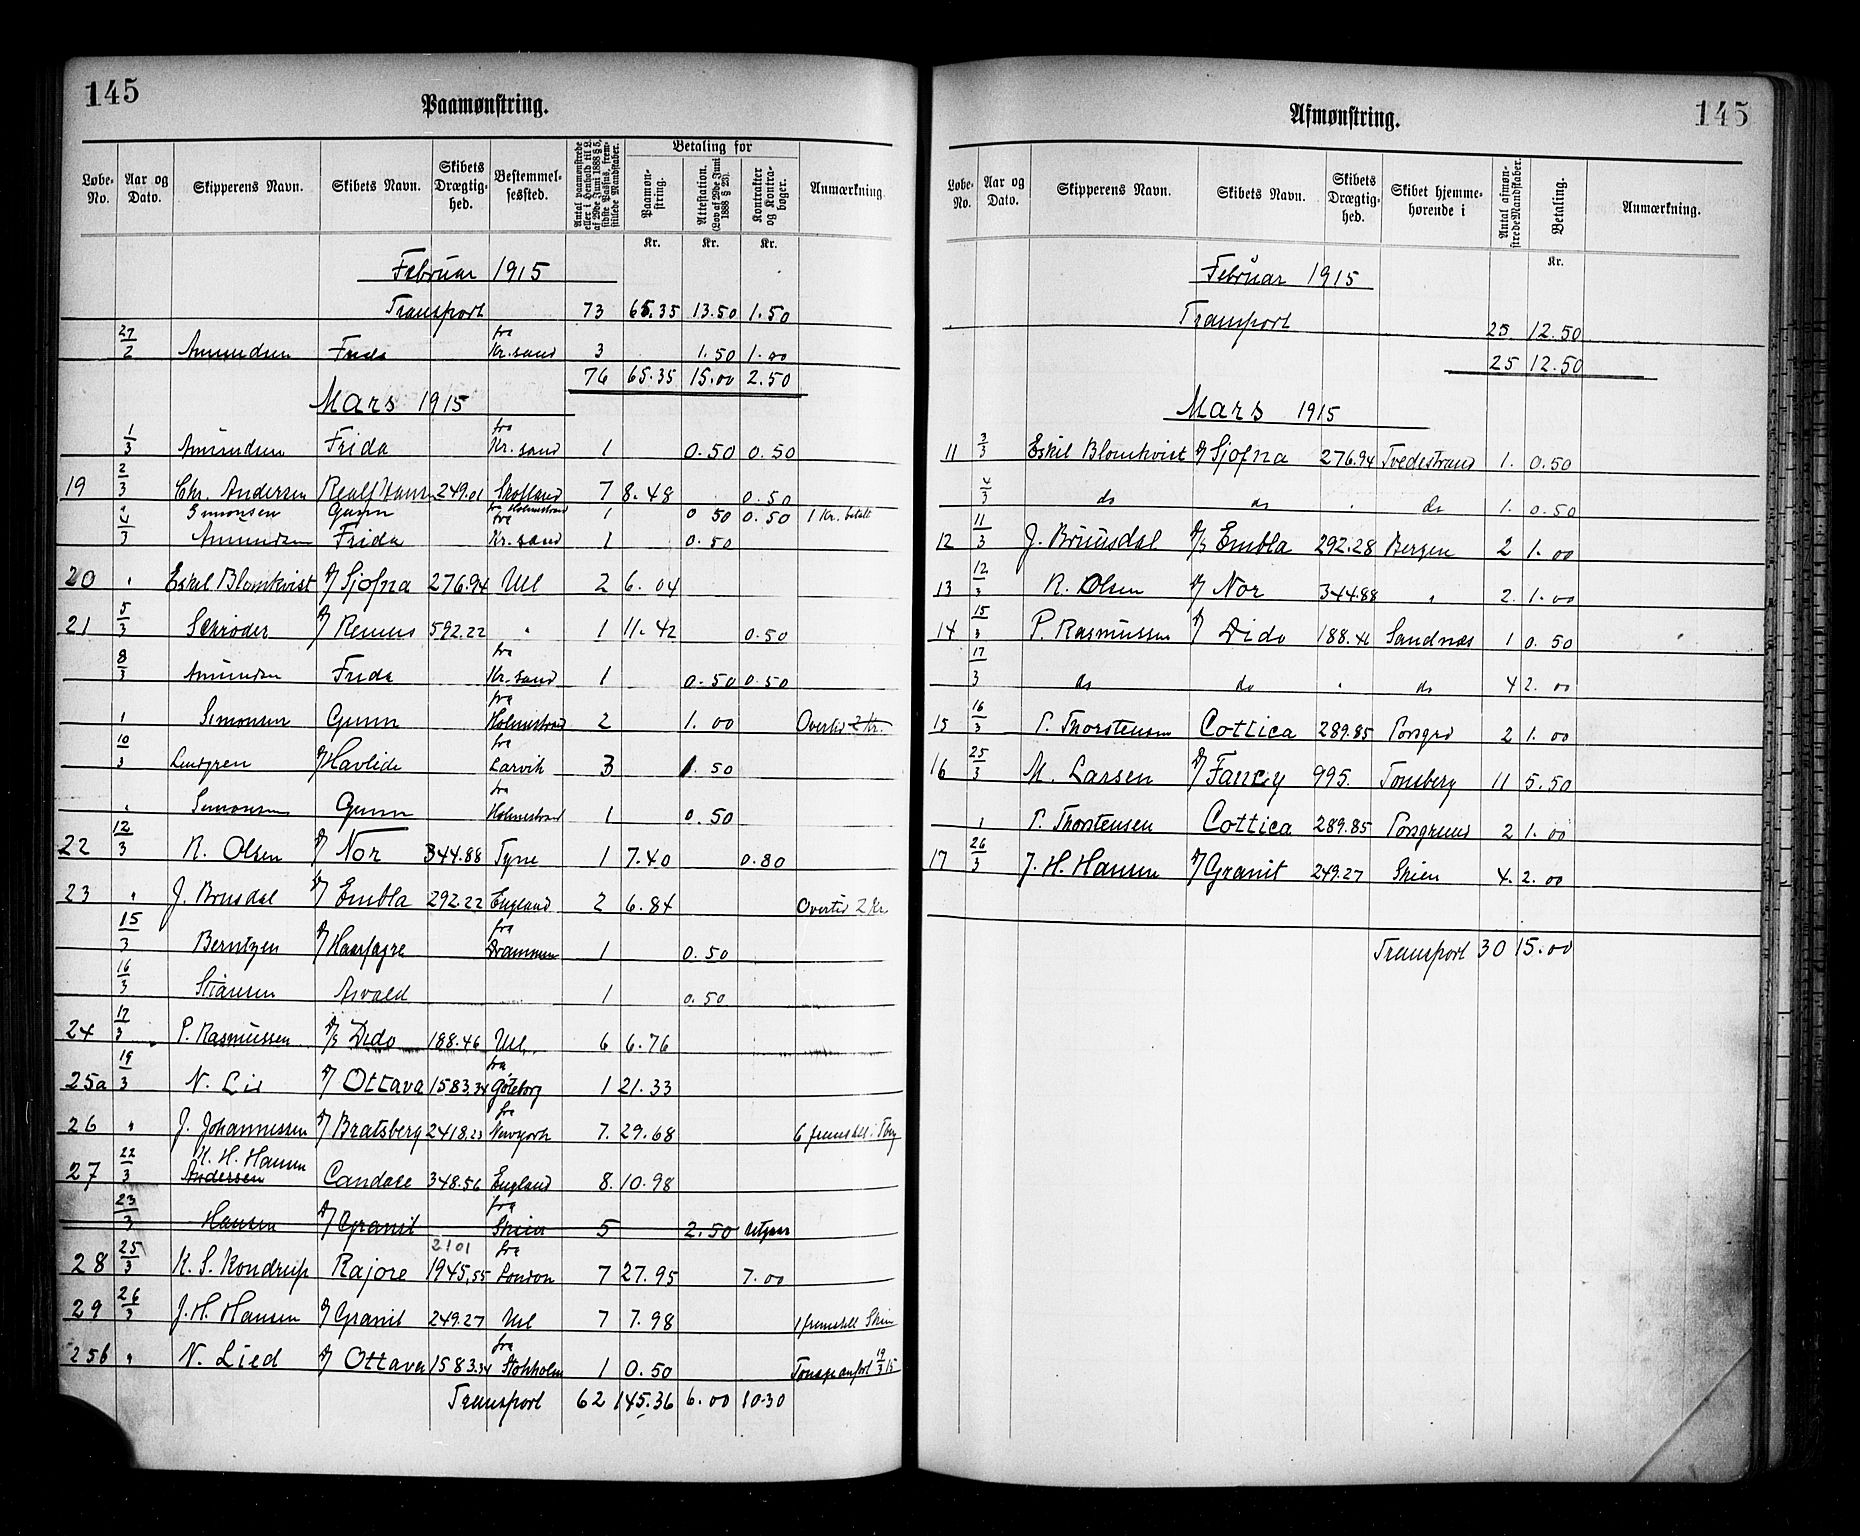 145
Paamønstring.
Løbe-No. Aar og Dato. Skipperens Navn. Skibets Navn. Skibets Drægtig-hed. Bestemmel-sessted. Antal paamønstrede eller i Henhold til L. af 29de Juni 1888 § 5, sidste Passus, frem-stillede Mandskaber. Betaling for Paamøn-string. Attestation. (Lov af 29de Juni 1888 § 23). Kontrakter og Kontra-bøger. Anmærkning.
Kr. Kr. Kr.
Februar 1915
Transport 73 65.35 13.50 1.50
27/2 Amundsen Frida fra Kr.sand 3 1.50 1.00
76 65.35 15.00 2.50
Mars 1915
1/3 Amundsen Frida fra Kr.sand 1 0.50 0.50
19 2/3 Chr. Andersen Realf Hansen 249.01 Skotland 7 8.48 0.50
" Simonsen Gunn fra Holmestrand 1 0 50 0.50 1 Kr. betalt
4/3 Amundsen Frida fra Kr.sand 1 0.50
20 " Eskil Blomkvist D/ Sjofna 276.94 Utl 2 6.04
21 5/3 Schrøder D/ Remus 592.22 " 1 11.42 0.50
8/3 Amundsen Frida fra Kr.sand 1 0.50 0.50
" Simonsen Gunn fra Holmestrand 2 1.00 Overtid 2 Kr.
10/3 Lundgren D/ Havlide fra Larvik 3 1.50
" Simonsen Gunn fra Holmestrand 1 0.50
22 12/3 R. Olsen D/ Nor 344.88 Tyne 1 7.40 0.80
23 " J. Brusdal D/ Embla 292.22 England 2 6.84 Overtid 2 Kr
15/3 Berntzen D/ Haarfagre fra Drammen 1 0.50
16/3 Stiansen Asvald 1 0.50
24 17/3 P. Rasmussen D/S Dido 188.46 Utl. 6 6.76
25a 19/3 N. Lid D/ Ottava 1583.34 fra Göteborg 1 21.33
26 " J. Johannessen D/ Bratsberg 2418.23 fra Newyork 7. 29.68 6 fremstill. i Tbg
27 22/3 K. H. Hansen Andersen Candace 348.56 England 8. 10.98
23/3 Hansen D/ Granit fra Skien 5 2.50 Utgaar
28 25/3 K. S. Kondrup Rajore 2101 1945,55 fra London 7 27.95 7.00
29 26/3 J. H. Hansen D/ Granit 249.27 Utl 7 7.98 1 fremstill Skien
25b " N. Lied D/ Ottava 1583.34 fra Stokholm 1 0.50 19/3 15
Transport 62 145.36 6.00 10.30
145
Afmønstring.
Løbe-No. Aar og Dato. Skipperens Navn. Skibets Navn. Skibets Drægtig-hed. Skibet hjemme-hørende i Antal afmøn-strede Mandskaber. Betaling. Anmærkning.
Kr.
Februar 1915
Transport 25 12.50
25 12.50
Mars 1915
11 3/3 Eskil Blomkvist D/ Sjofna 276.94 Tvedestrand 1. 0.50
4/3 do do " do 1. 0.50
12 11/3 J. Bruusdal D/S Embla 292.28 Bergen 2 1.00
13 12/3 R. Olsen D/ Nor 344.88 " 2. 1.00
14 15/3 P. Rasmussen D/ Dido 188.46 Sandnæs 1 0.50
17/3 do do " do 4 2.00
15 16/3 T. Thorstensen Cottica 289.85 Porsgrd 2 1.00
16 25/3 M. Larsen D/ Fancy 995. Tonsberg 11 5.50
" T. Thorstensen Cottica 289.85 Porsgrund 2 1.00
17 26/3 J. H. Hansen D/ Granit 249.27 Skien 4. 2.00
Transport 30 15.00